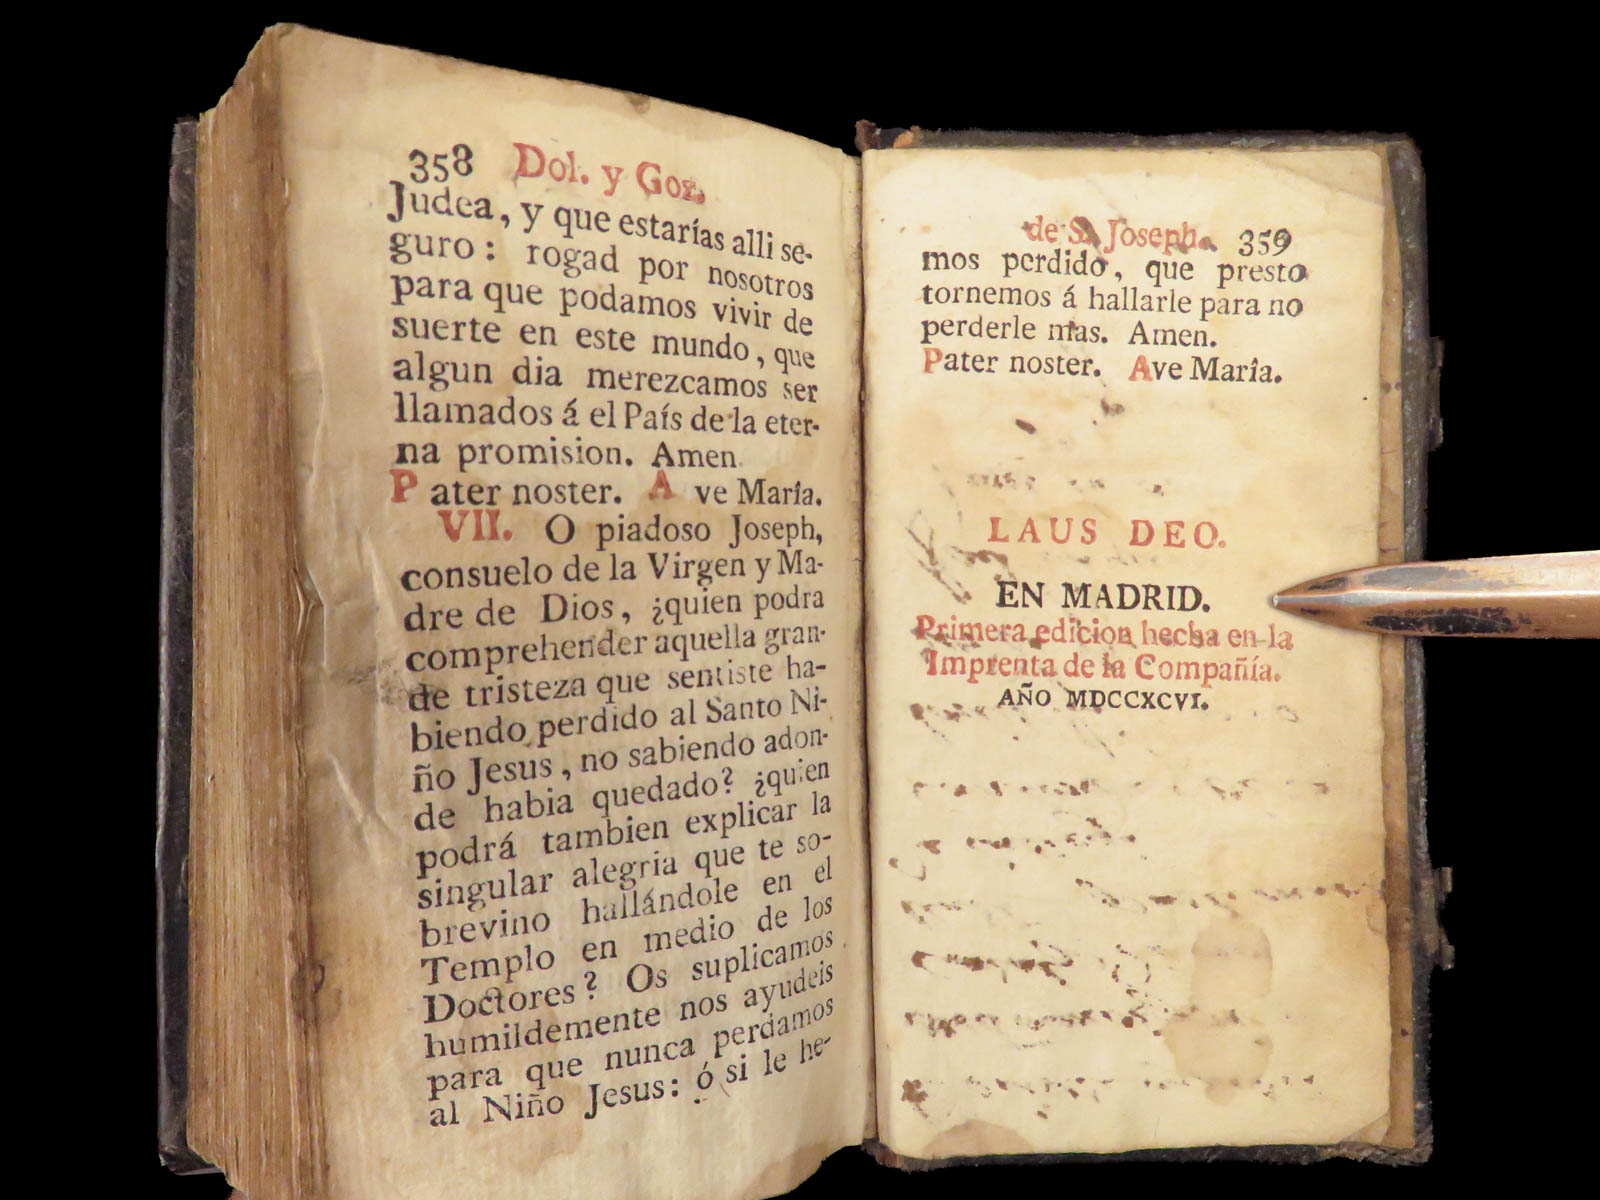 358 Dol. y Goz.
Judea, y que estarías alli se-
guro: rogad por nosotros
para que podamos vivir de
suerte en este mundo, que
algun dia merezcamos ser
llamados á el País de la eter-
na promision. Amen.
Pater noster. Ave María.
VII. O piadoso Joseph,
consuelo de la Virgen y Ma-
dre de Dios, ¿quien podra
comprehender aquella gran-
de tristeza que sentiste ha-
biendo perdido al Santo Ni-
ño Jesus, no sabiendo adon-
de habia quedado? ¿quien
podrá tambien explicar la
singular alegria que te so-
brevino hallándole en el
Templo en medio de los
Doctores? Os suplicamos
humildemente nos ayudeis
para que nunca perdamos
al Niño Jesus: ó si le he-
de S. Joseph. 359
mos perdido, que presto
tornemos á hallarle para no
perderle mas. Amen.
Pater noster. Ave María.
LAUS DEO.
EN MADRID.
Primera edicion hecha en la
Imprenta de la Compañía.
AÑO MDCCXCVI.